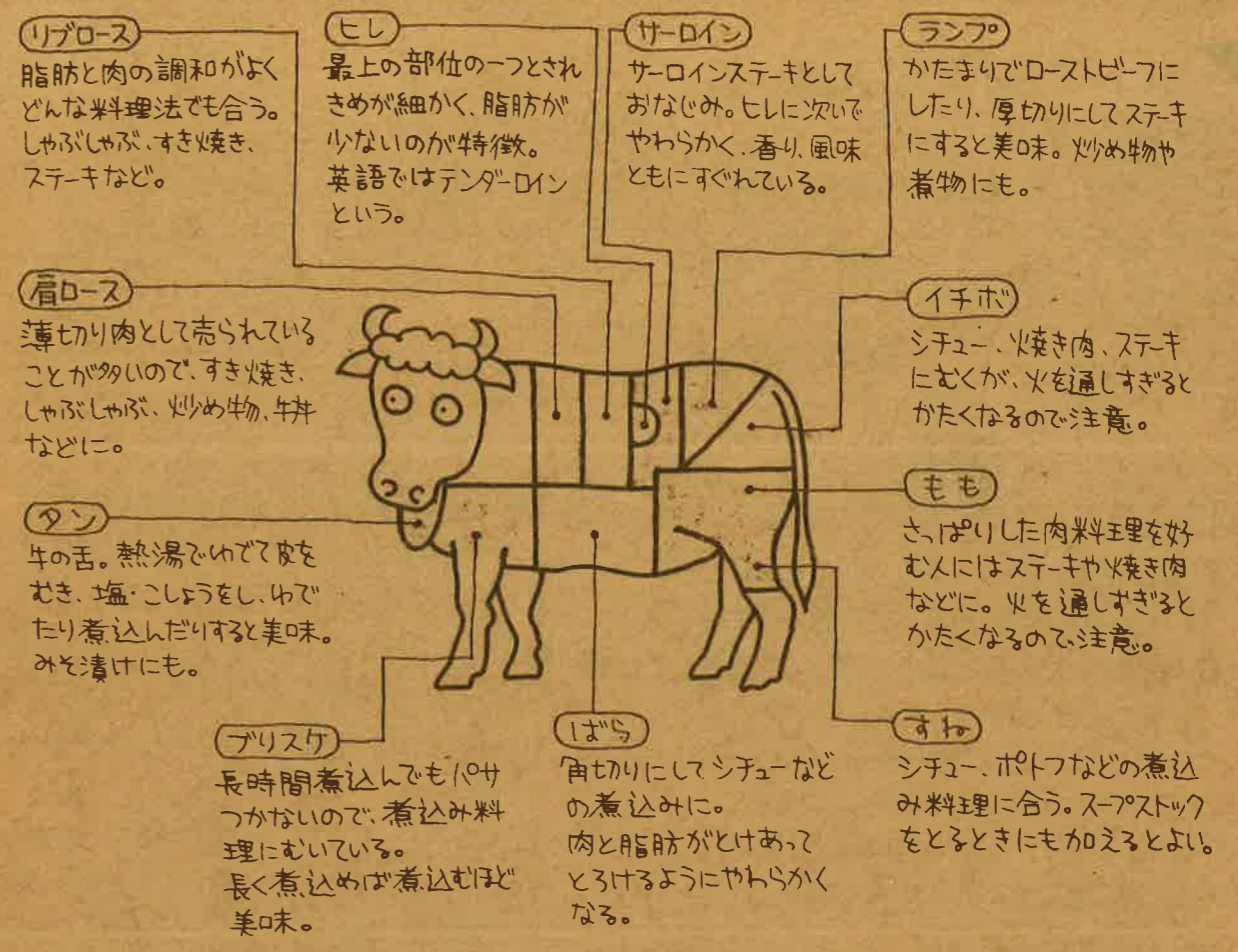 リブロース
脂肪と肉の調和がよく
どんな料理法でも合う。
しゃぶしゃぶ、すき焼き、
ステーキなど。
ヒレ
最上の部位の一つとされ
きめが細かく、脂肪が
少ないのが特徴。
英語ではテンダーロイン
という。
サーロイン
サーロインステーキとして
おなじみ。ヒレに次いで
やわらかく、香り、風味
ともにすぐれている。
ランプ
かたまりでローストビーフに
したり、厚切りにしてステーキ
にすると美味。炒め物や
煮物にも。
肩ロース
薄切り肉として売られている
ことが多いので、すき焼き、
しゃぶしゃぶ、炒め物、牛丼
などに。
イチボ
シチュー、焼き肉、ステーキ
にむくが、火を通しすぎると
かたくなるので注意。
タン
牛の舌。熱湯でゆでて皮を
むき、塩・こしょうをし、ゆで
たり煮込んだりすると美味。
みそ漬けにも。
もも
さっぱりした肉料理を好
む人にはステーキや焼き肉
などに。火を通しすぎると
かたくなるので注意。
ブリスケ
長時間煮込んでもパサ
つかないので、煮込み料
理にむいている。
長く煮込めば煮込むほど
美味。
ばら
角切りにしてシチューなど
の煮込みに。
肉と脂肪がとけあって
とろけるようにやわらかく
なる。
すね
シチュー、ポトフなどの煮込
み料理に合う。スープストック
をとるときにも加えるとよい。